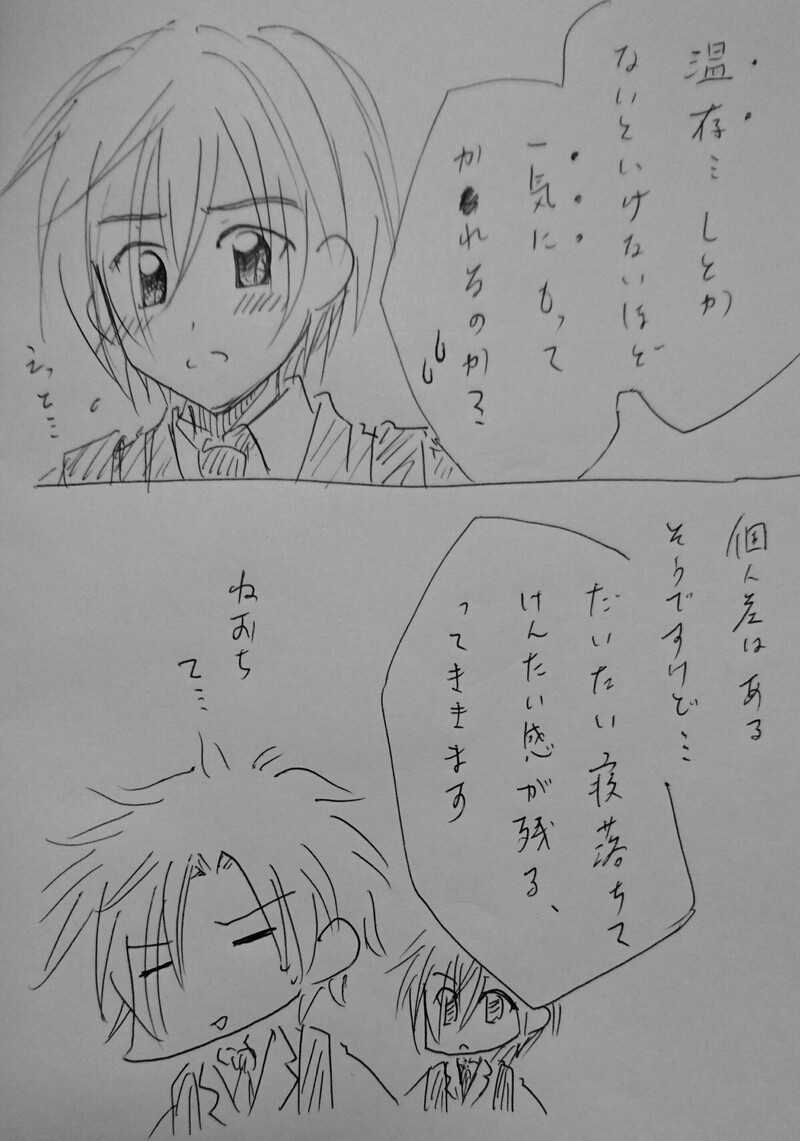 温存…しとか
ないといけないほど
一気にもって
かれるのか…
えっと…
個人差はある
そうですけど…
だいたい寝落ちて
けんたい感が残る、
ってききます
ねおち
て…